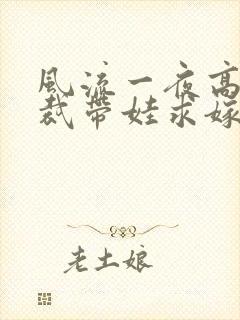 风流一夜高
裁带娃求嫁
老土娘